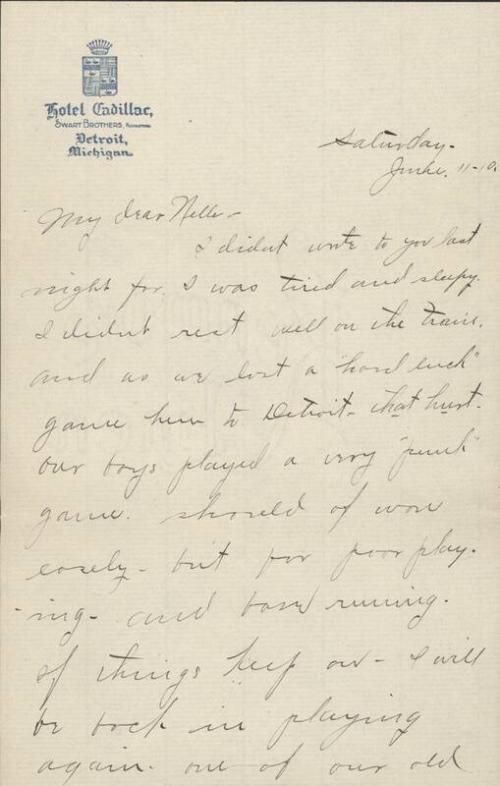 Hotel Cadillac,
Swart Brothers,
Detroit,
Michigan.
Saturday-
June. 11-10.
My dear Nelle-
I didnt write to you last
night for I was tired and sleepy.
I didnt rest well on the train.
and as we lost a "hard luck"
game here to Detroit- that hurt.
our boys played a very "punk"
game. should of won
easely- but for poor play-
ing- and base runing.
If things keep on- I will
be back in playing
again. one of our old